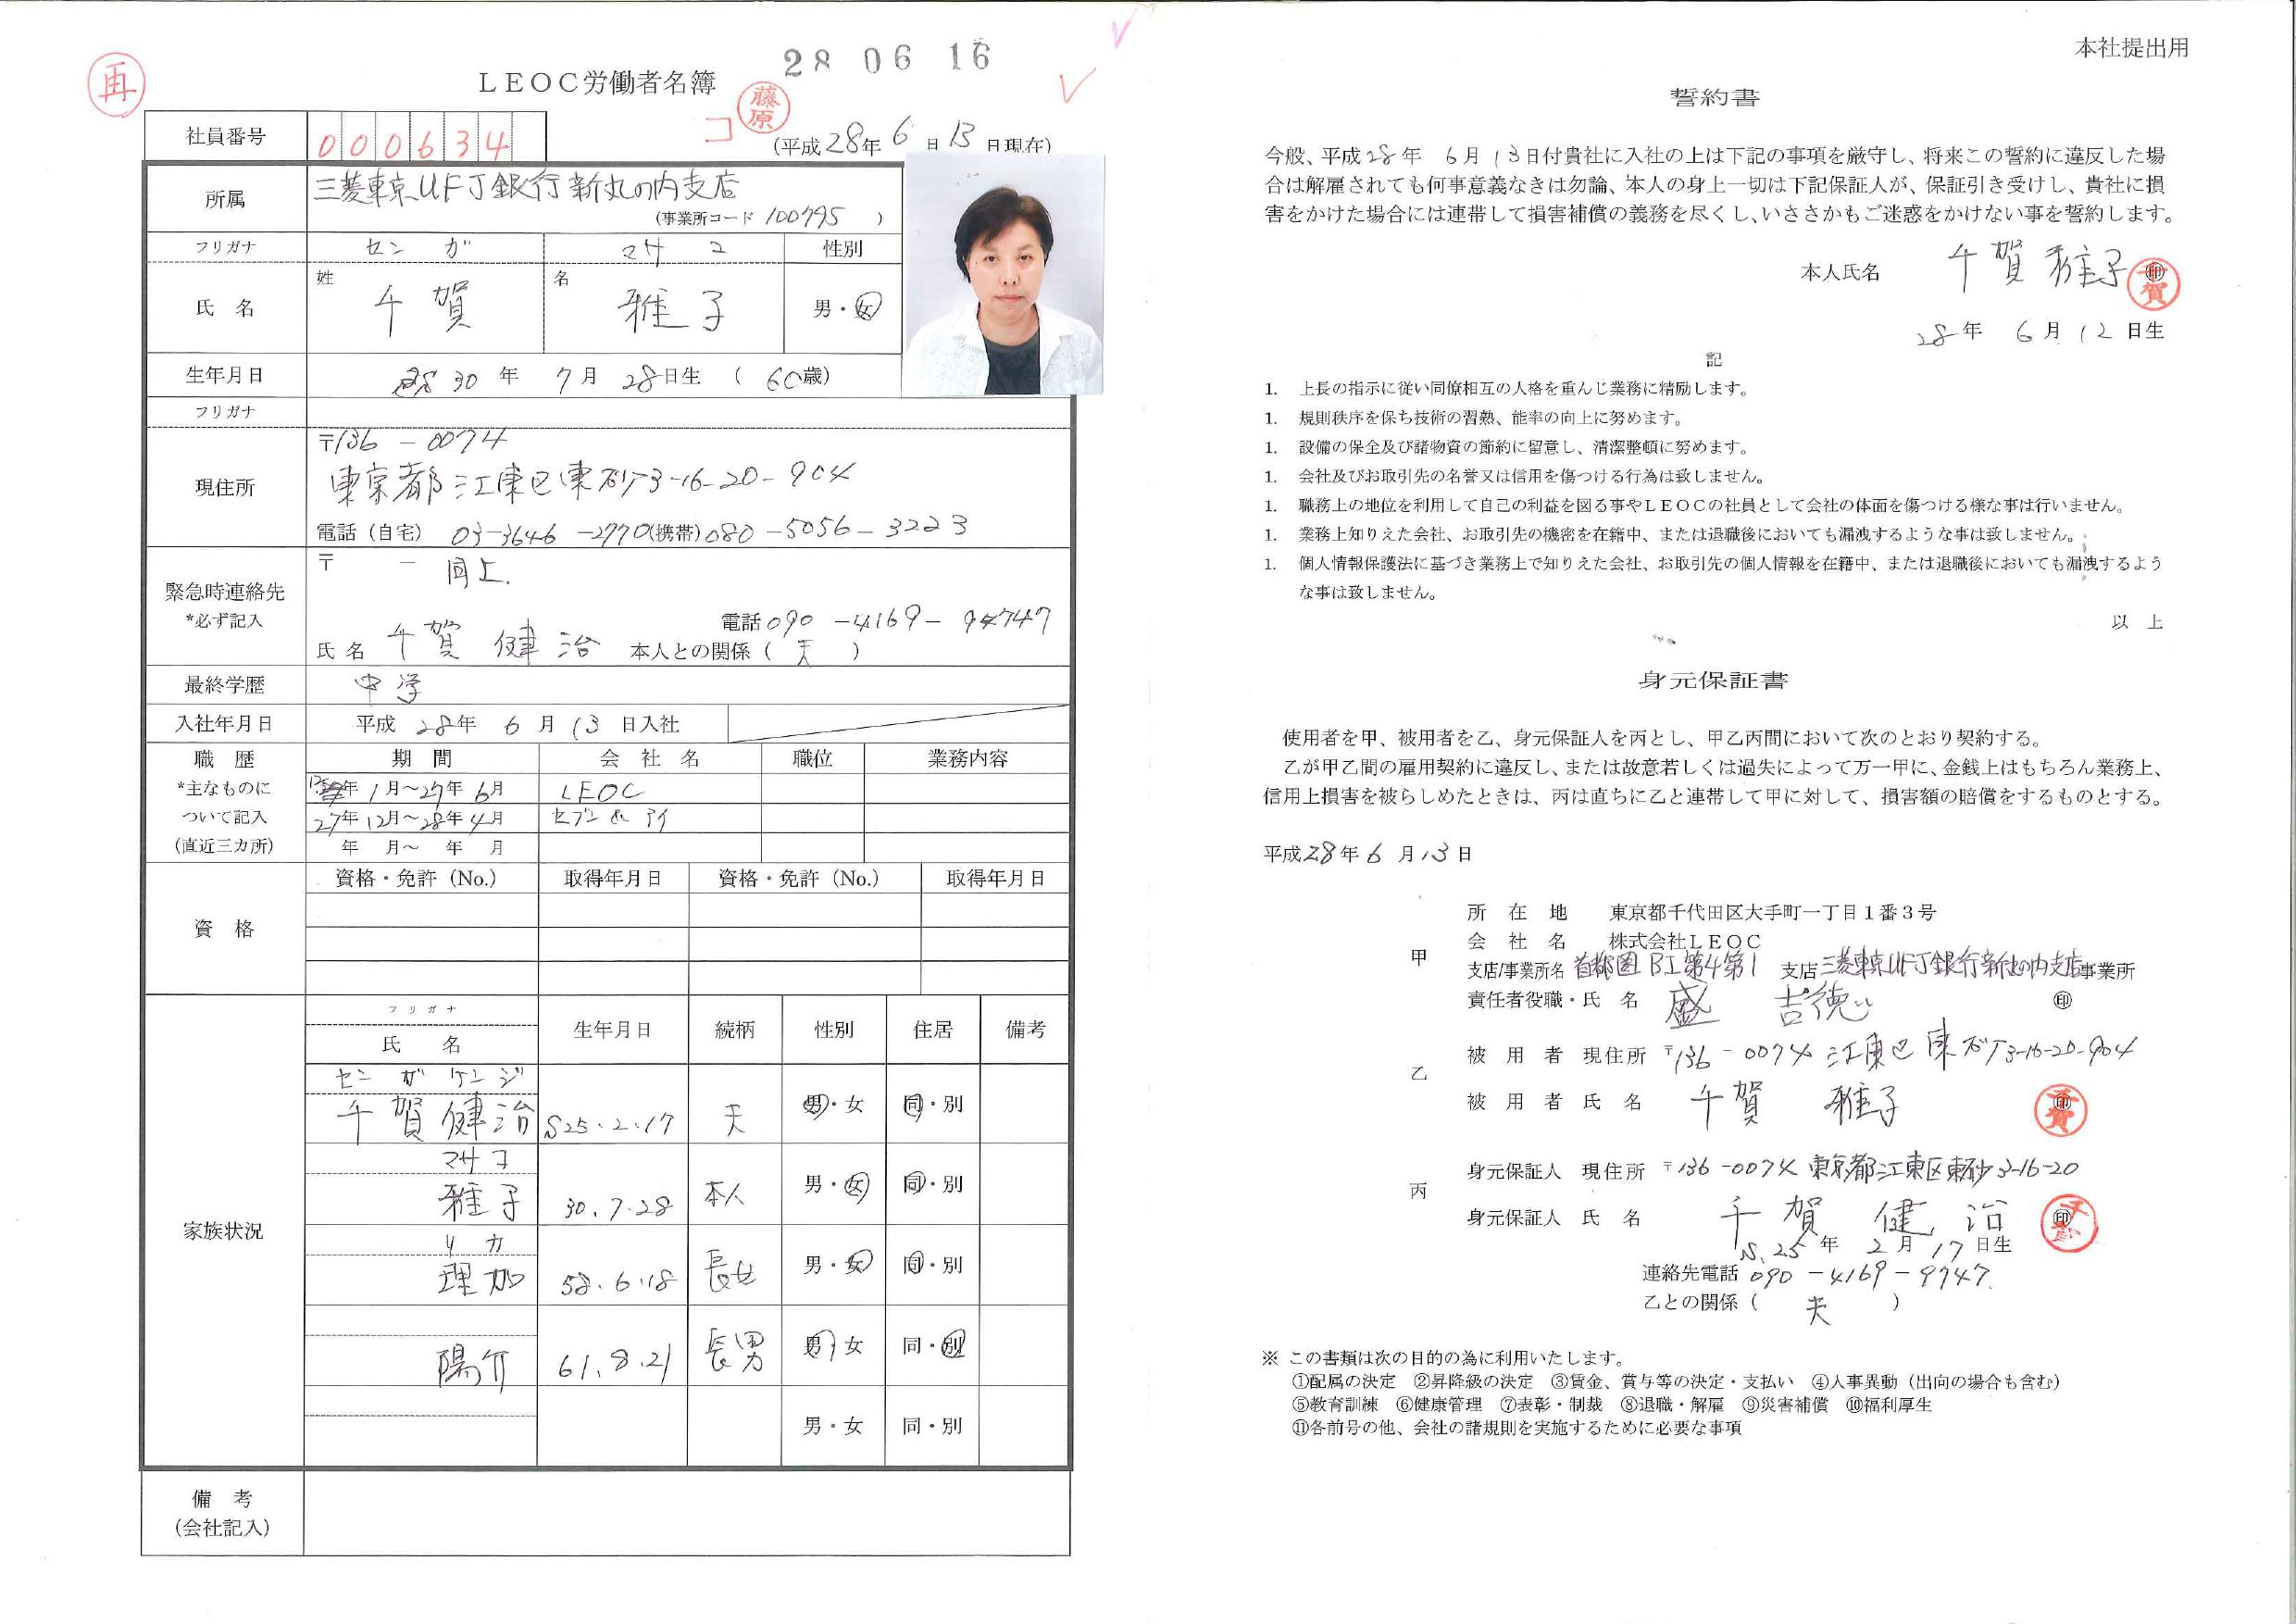 再
LEOC労働者名簿
28 06 16
藤原
コ
社員番号 000634
(平成28年6日13日現在)
所属 三菱東京UFJ銀行新丸の内支店
(事業所コード 100795 )
フリガナ センガ マサコ 性別
氏名 姓 千賀 名 雅子 男・女
生年月日 30年 7月 28日生 ( 60歳)
フリガナ
現住所 〒136-0074
東京都江東区東砂3-16-20-904
電話(自宅) 03-3646-2770(携帯)080-5056-3223
緊急時連絡先 *必ず記入 〒 - 同上.
電話090-4169-
氏名 千賀 健治 本人との関係( 夫 )
最終学歴 中学
入社年月日 平成 28年 6月 13日入社
職歴 期間 会社名 職位 業務内容
*主なものに 年 1月~27年 6月 LEOC
ついて記入 27年12月~28年4月 セブン&アイ
(直近三カ所) 年 月~ 年 月
資格 資格・免許(No.) 取得年月日 資格・免許(No.) 取得年月日
家族状況 フリガナ
氏名 生年月日 続柄 性別 住居 備考
センガケンジ
千賀健治 S25.2.17 夫 男・女 同・別
マサコ
雅子 30.7.28 本人 男・女 同・別
リカ
理加 58.6.18 長女 男・女 同・別
陽介 61.8.21 長男 男・女 同・別
男・女 同・別
備考
(会社記入)
本社提出用
誓約書
今般、平成28年 6月13日付貴社に入社の上は下記の事項を厳守し、将来この誓約に違反した場
合は解雇されても何事意義なきは勿論、本人の身上一切は下記保証人が、保証引き受けし、貴社に損
害をかけた場合には連帯して損害補償の義務を尽くし、いささかもご迷惑をかけない事を誓約します。
本人氏名 千賀雅子 印 千賀
28年 6月 12日生
記
1. 上長の指示に従い同僚相互の人格を重んじ業務に精励します。
1. 規則秩序を保ち技術の習熟、能率の向上に努めます。
1. 設備の保全及び諸物資の節約に留意し、清潔整頓に努めます。
1. 会社及びお取引先の名誉又は信用を傷つける行為は致しません。
1. 職務上の地位を利用して自己の利益を図る事やLEOCの社員として会社の体面を傷つける様な事は行いません。
1. 業務上知りえた会社、お取引先の機密を在籍中、または退職後においても漏洩するような事は致しません。
1. 個人情報保護法に基づき業務上で知りえた会社、お取引先の個人情報を在籍中、または退職後においても漏洩するよう
な事は致しません。
以上
身元保証書
使用者を甲、被用者を乙、身元保証人を丙とし、甲乙丙間において次のとおり契約する。
乙が甲乙間の雇用契約に違反し、または故意若しくは過失によって万一甲に、金銭上はもちろん業務上、
信用上損害を被らしめたときは、丙は直ちに乙と連帯して甲に対して、損害額の賠償をするものとする。
平成28年6月13日
所在地 東京都千代田区大手町一丁目1番3号
甲 会社名 株式会社LEOC
支店/事業所名 首都圏BI第4第1 支店 三菱東京UFJ銀行新丸の内支店 事業所
責任者役職・氏名 盛 吉徳 印
乙 被用者 現住所 〒136-0074 江東区東砂3-16-20-904
被用者氏名 千賀 雅子 印 千賀
丙 身元保証人 現住所 〒136-0074 東京都江東区東砂3-16-20
身元保証人 氏名 千賀 健治 印 千賀
S.25年 2月 17日生
連絡先電話 090-4169-9747
乙との関係( 夫 )
※ この書類は次の目的の為に利用いたします。
①配属の決定 ②昇降級の決定 ③賃金、賞与等の決定・支払い ④人事異動(出向の場合も含む)
⑤教育訓練 ⑥健康管理 ⑦表彰・制裁 ⑧退職・解雇 ⑨災害補償 ⑩福利厚生
⑪各前号の他、会社の諸規則を実施するために必要な事項